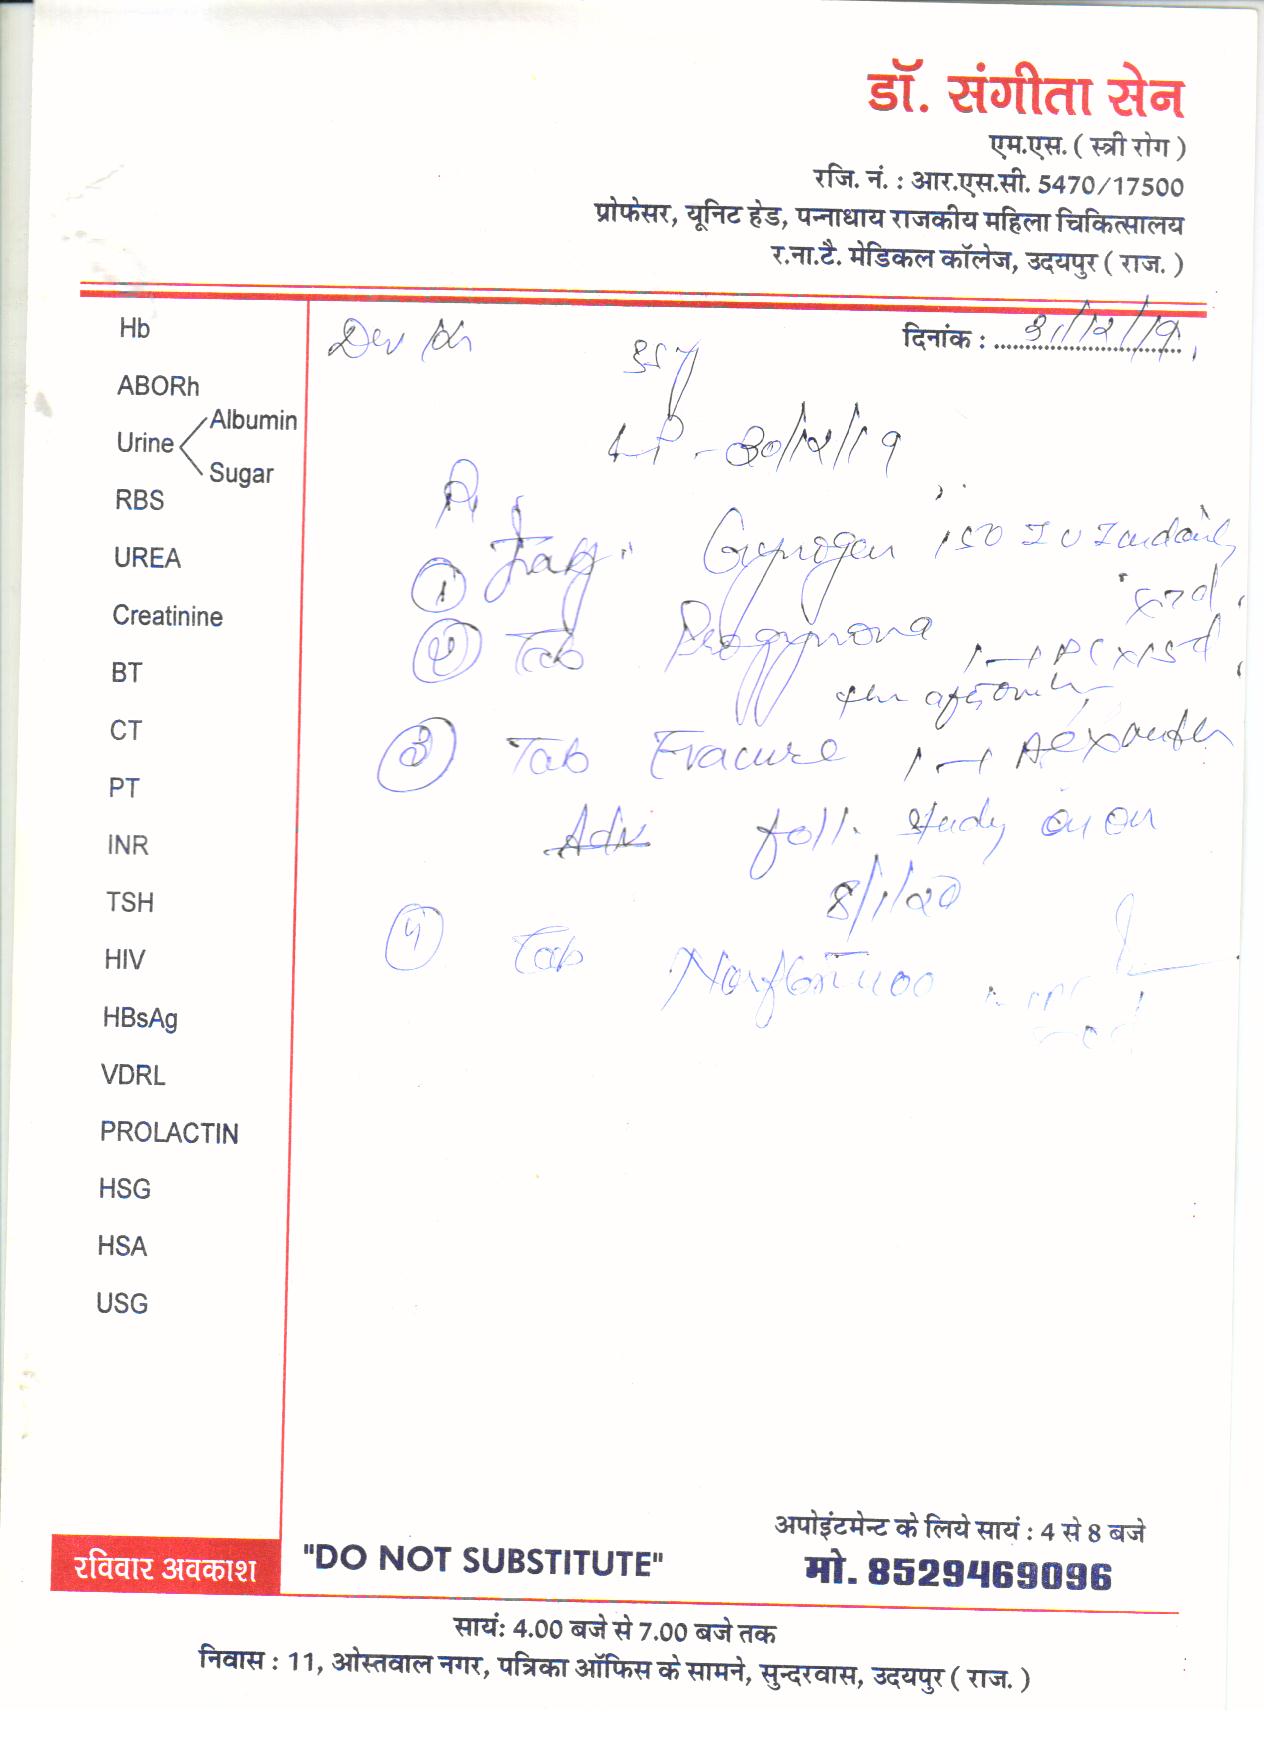 डॉ. संगीता सेन
एम.एस. ( स्त्री रोग )
रजि. नं. : आर.एस.सी. 5470/17500
प्रोफेसर, यूनिट हेड, पन्नाधाय राजकीय महिला चिकित्सालय
र.ना.टै. मेडिकल कॉलेज, उदयपुर ( राज. )
दिनांक : 31/12/19
Dev
35y
- 30/12/19
① Gynogen 150 IU
② Tab
③ Tab Evacure 1-1
Adv foll. study on
8/1/20
④ Tab 400
Hb
ABORh
Urine Albumin
Sugar
RBS
UREA
Creatinine
BT
CT
PT
INR
TSH
HIV
HBsAg
VDRL
PROLACTIN
HSG
HSA
USG
रविवार अवकाश
"DO NOT SUBSTITUTE"
अपोइंटमेन्ट के लिये सायं : 4 से 8 बजे
मो. 8529469096
सायं: 4.00 बजे से 7.00 बजे तक
निवास : 11, ओस्तवाल नगर, पत्रिका ऑफिस के सामने, सुन्दरवास, उदयपुर ( राज. )